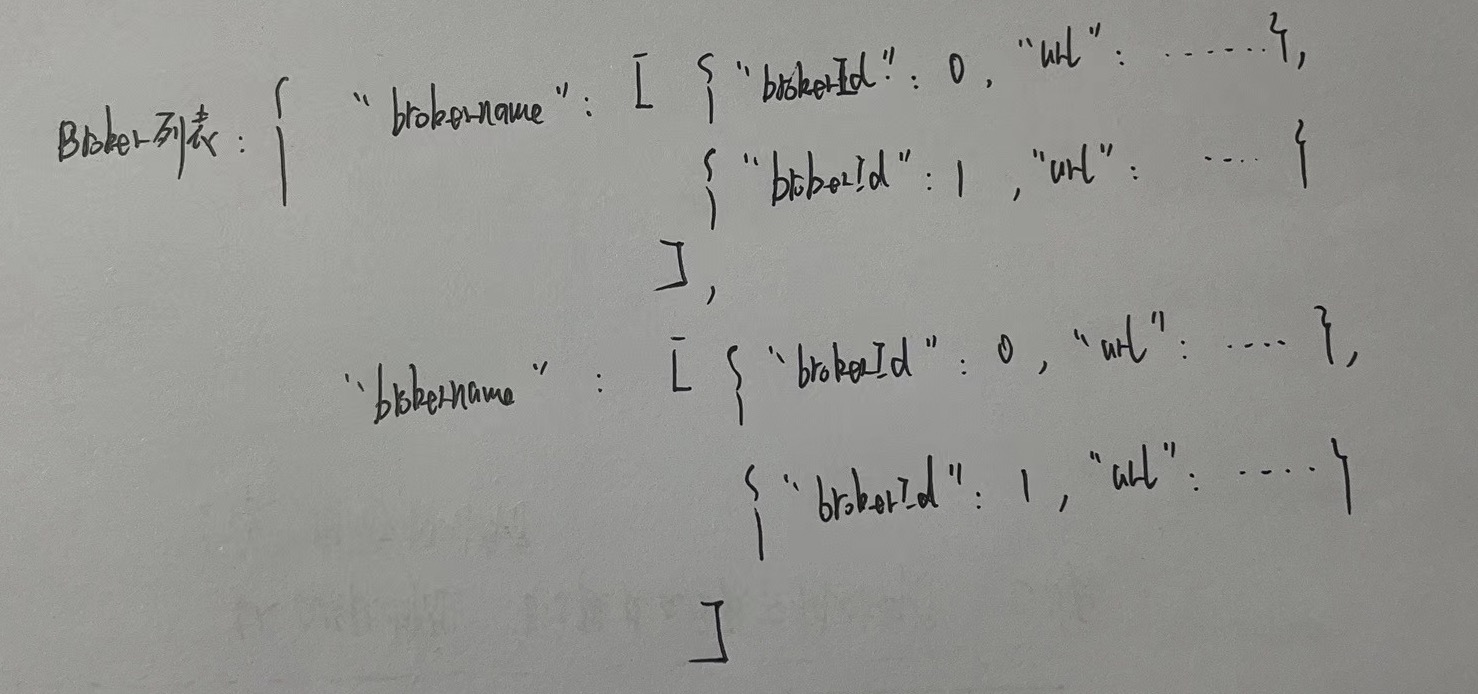 Broker列表: { "brokername": [ { "brokerId": 0, "url": ......},
{ "brokerId": 1, "url": .... }
],
"brokername" : [ { "brokerId": 0, "url": .... },
{ "brokerId": 1, "url": .... }
]